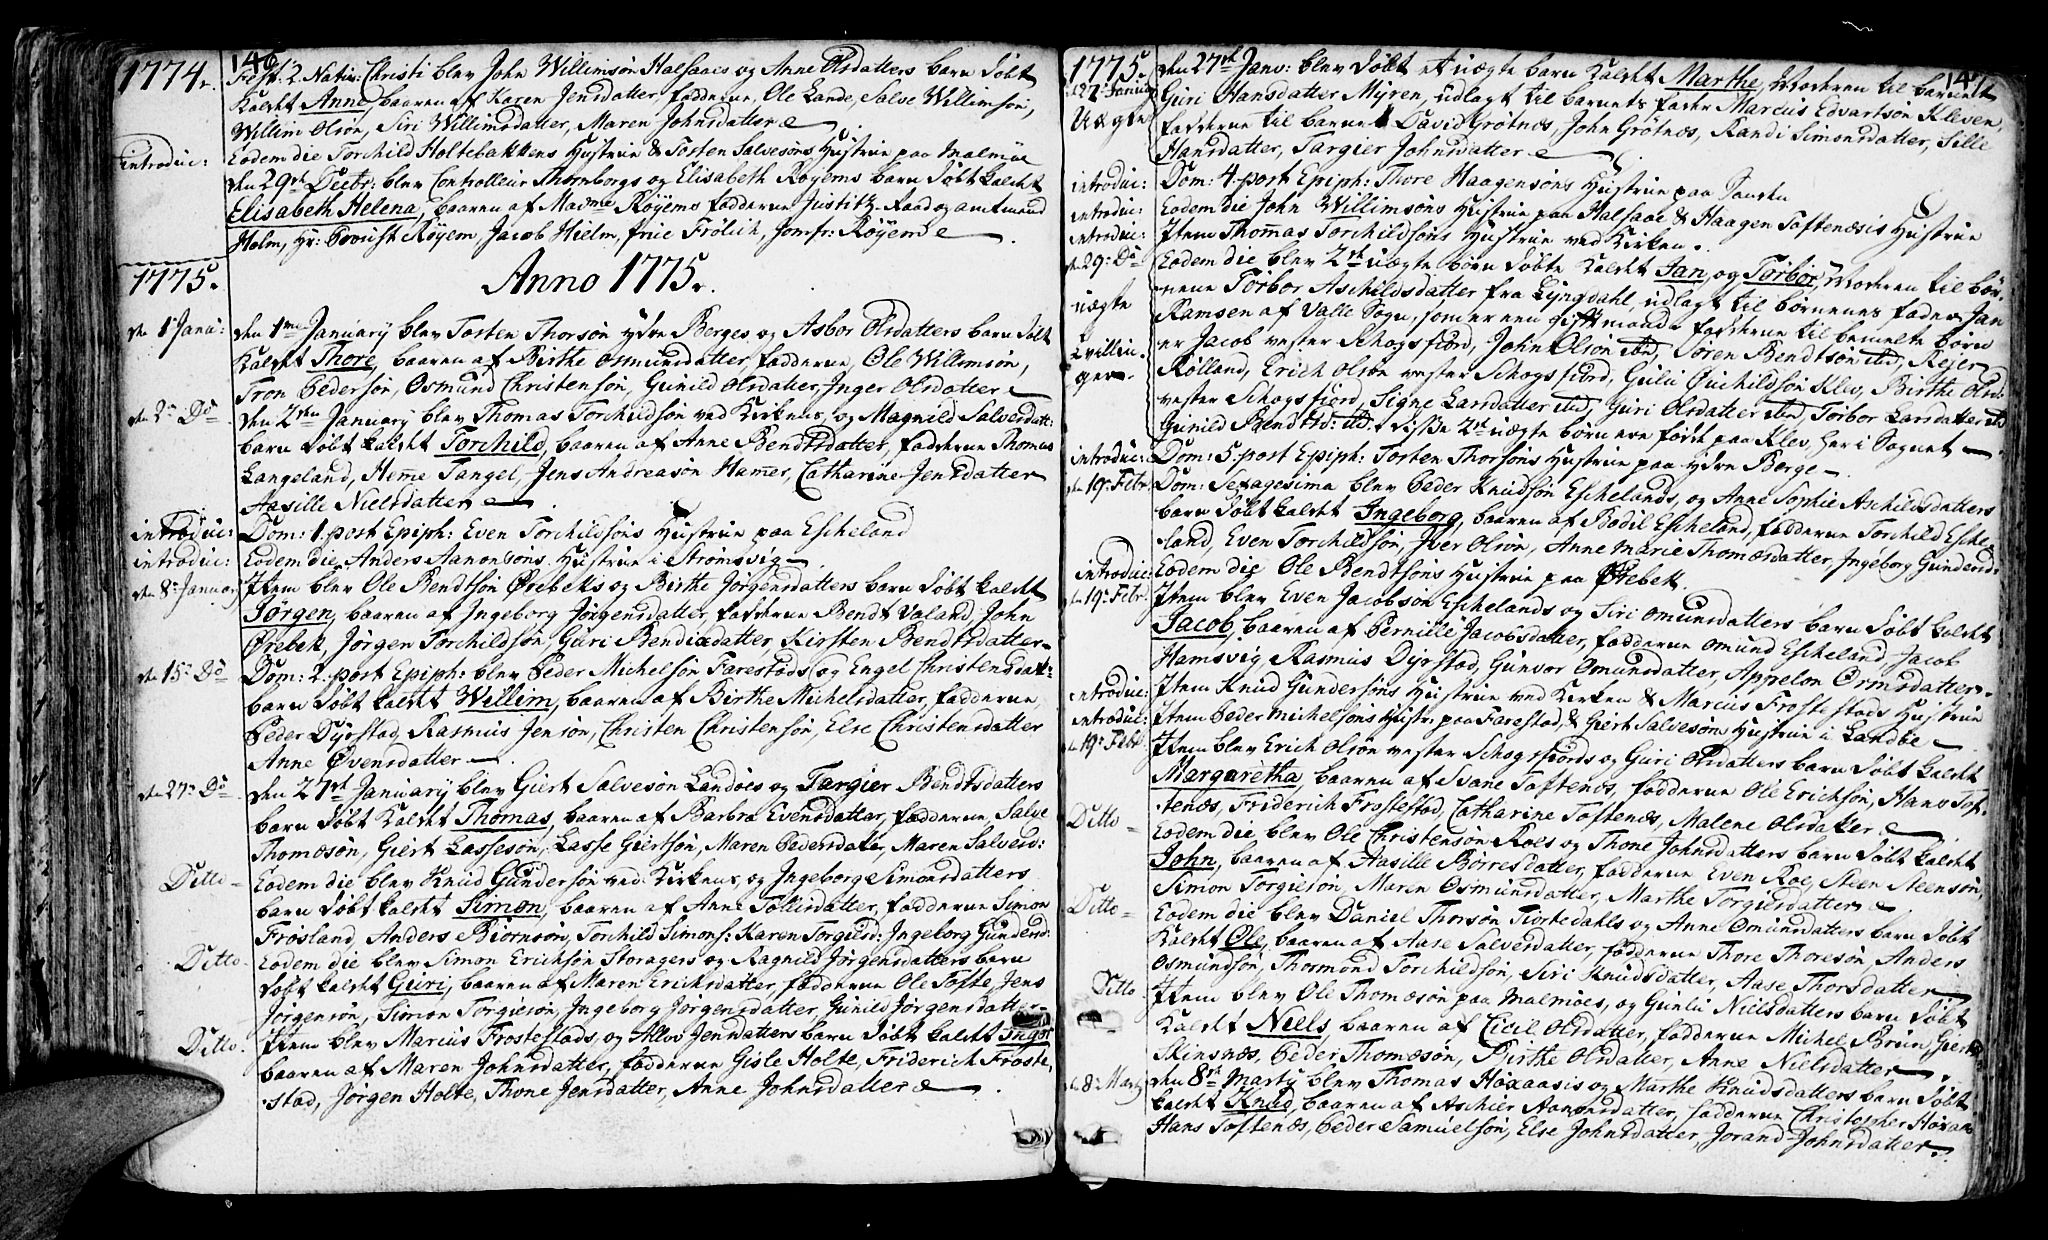 146
1774.
Fest: 2. Nativ: Christi blev John Willimsøn Halsaaes og Anne Olsdatters barn døbt
kaldet Anne, baaren af Karen Jensdatter, fadderne, Ole Lande, Salve Willimsøn,
Willim Olsøn, Siri Willimsdatter, Maren Johnsdatter
introduc: Eodem die Torchild Holtebakkens Hustrue & Tosten Salvesøns Hustrue paa Malmøe
den 29de Decbr: blev Controlleur Thornborgs og Elisabeth Røyems barn døbt kaldet
Elisabeth Helena, baaren af Madme Røyems fadderne Justitz-Raad og amtmand
Holm, Hr: Provist Røyem Jacob Hielm, frue Frølich, Jomfr: Røyem
1775. Anno 1775.
de 1 Janu: den 1me January blev Tosten Thorsøn ydre Berges og Asbor Olsdatters barn døbt
kaldet Thore, baaren af Birthe Osmundsdatter, fadderne, Ole Willimsøn,
Tron Pedersøn, Osmund Christensøn, Gunild Olsdatter, Inger Olsdatter
de 2 Do den 2den January blev Thomas Torchildsøn ved Kirkens, og Magnild Salvesdatt:
barn døbt kaldet Torchild, baaren af Anne Bendtsdatter, fadderne Thomas
Langeland, Heme Tangel, Jens Andreasøn Hamer, Catharine Jensdatter
Aasille Nielsdatter
introduc: Dom: 1. post Epiph: Even Torchildsøns Hustrue paa Escheland
introduc: Eodem die Anders Aanonsøns Hustrue i Strømsvig
de 8 January Item blev Ole Bendtsøn Ørebeks og Birthe Jørgensdatters barn døbt kaldet
Jørgen, baaren af Ingeborg Jørgensdatter, fadderne Bendt Valand, John
Ørebek, Jørgen Torchildsøn, Guri Bendixdatter, Kirsten Bendtsdatter
de 15 Do Dom: 2. post Epiph: blev Peder Michelsøn Farestads og Engel Christensdatt:
barn døbt kaldet Willim, baaren af Birthe Michelsdatter, fadderne,
Peder Dyrstad, Rasmus Jensøn, Christen Christensøn, Else Christensdatter
Anne Øvensdatter
de 27 Do den 27de January blev Giert Salvesøn Landøes og Targier Bendtsdatters
barn døbt kaldet Thomas, baaren af Barbra Evensdatter, fadderne, Salve
Thomæsøn, Giert Lassesøn, Lasse Giertsøn, Maren Pedersdatter, Maren Salvesd:
Ditto Eodem die blev Knud Gundersøn ved Kirkens, og Ingeborg Simonsdatters
barn døbt kaldet Simon, baaren af Anne Tollisdatter, fadderne Simon
Frøsland, Anders Biørnsøn, Torchild Simons: Karen Torgiersd: Ingeborg Gundersd:
Ditto Eodem die blev Simon Erichsøn Storagers og Ragnild Jørgensdatters barn
døbt kaldet Guri, baaren af Maren Erichsdatter, fadderne Ole Tofte, Jens
Jørgensøn, Simon Torgiesøn, Ingeborg Jørgensdatter, Gunild Jørgensdatter
Ditto Item blev Marcus Frostestads, og Allov Jensdatters barn døbt kaldet Inger
baaren af Maren Johnsdatter, fadderne Gisle Holte, Friderich Froste-
stad, Jørgen Holte, Thone Jensdatter, Anne Johnsdatter
147
1775.
27 January den 27de Janv: blev døbt et uægte barn kaldet Marthe, Moderen til barnet
Uægte Guri Hansdatter Myren, udlagt til barnets fader Marcus Edvartsøn Kleven,
fadderne til barnet David Grøtnæs, John Grøtnæs, Randi Simonsdatter, Sille
Hansdatter, Targier Johnsdatter
introduc: Dom: 4. post Epiph: Thore Haagensøns Hustrue paa
introduc: Eodem die John Willimsøns Hustrue paa Halsaae & Haagen Toftenæsis Hustrue
introduc: Item Thomas Torchildsøns Hustrue ved Kirken.
de 29 Do Eodem die blev 2de uægte børn døbte kaldet Jan, og Torbor, Moderen til bør-
uægte nene Torbor Aschildsdatter fra Lyngdahl, udlagt til børnenes fader Jan
Ramsen af Valle Sogn, som er een gift mand, fadderne til bemelte børn
tvillin- er Jacob vester Schogsfiord, John Olsøn ibd, Søren Bendtsøn ibd, Reier
ger Rølland, Erich Olsøn vester Schogsfiord, Guli Ouchildsøn Klev, Birthe Olsd:
vester Schogsfiord, Signe Larsdatter ibd, Guri Olsdatter ibd, Torbor Larsdatter ibd
Gunild Bendtsd: ibd: disse 2de uægte børn ere født paa Klev her i Sognet
introduc: Dom: 5. post Epiph: Tosten Thorsøns Hustrue paa ydre Berge
de 19 Febr: Dom: Sexagesima blev Peder Knudsøn Eschelands, og Anne Sophie Aschildsdatters
barn døbt kaldet Ingeborg, baaren af Bodil Escheland, fadderne Torchild Esche-
land, Even Torchildsøn, Iver Olsøn, Anne Marie Thomæsdatter, Ingeborg Gundersd:
introduc: Eodem die Ole Bendtsøns Hustrue paa Ørebek
de 19 Febr. Item blev Even Jacobsøn Eschelands og Siri Omundsdatters barn døbt kaldet
Jacob, baaren af Pernille Jacobsdatter, fadderne Omund Escheland, Jacob
Hamsvig, Rasmus Dyrstad, Gunvor Omundsdatter, Appelon Ormsdatter
introduc: Item Knud Gundersøns Hustrue ved Kirken & Marcus Frostestads Hustrue
introduc: Item Peder Michelsøns Hustr: paa Farestad, & Giert Salvesøns Hustrue i Landøe
19 Febr Item blev Erich Olsøn vester Schogsfiords og Guri Olsdatters barn døbt kaldet
Margaretha, baaren af Svane Toftenæs, fadderne Ole Erichsøn, Hans Tof-
tenæs, Friderich Frostestad, Catharine Toftenæs, Malene Olsdatter
Ditto Eodem die blev Ole Christensøn Roes og Thone Johnsdatters barn døbt kaldet
John, baaren af Aasille Børresdatter, fadderne Even Roe, Steen Steensøn,
Simon Torgiesøn, Maren Osmundsdatter, Marthe Torgiersdatter
Ditto Eodem die blev Daniel Thorsøn Tiortedahls og Anne Omundsdatters barn døbt
kaldet Ole, baaren af Aase Salvesdatter, fadderne Thore Thoresøn Anders
Osmundsøn, Thormond Torchildsøn, Siri Knudsdatter, Aase Thorsdatter
Ditto Item blev Ole Thomæsøn paa Malmøes, og Gunlu Nielsdatters barn døbt
kaldet Niels, baaren af Cicil Olsdatter, fadderne Michel Bruun, Giert
Skinsnæs, Peder Thomæsøn, Birthe Olsdatter, Anne Nielsdatter
de 8 Marty den 8de Marty blev Thomas Høxaasis og Marthe Knudsdatters barn døbt
kaldet Knud, baaren af Aschier Aanonsdatter, fadderne Christopher Høxaas
Hans Toftenæs, Peder Samuelsøn, Else Johnsdatter, Jorand Johnsdatter